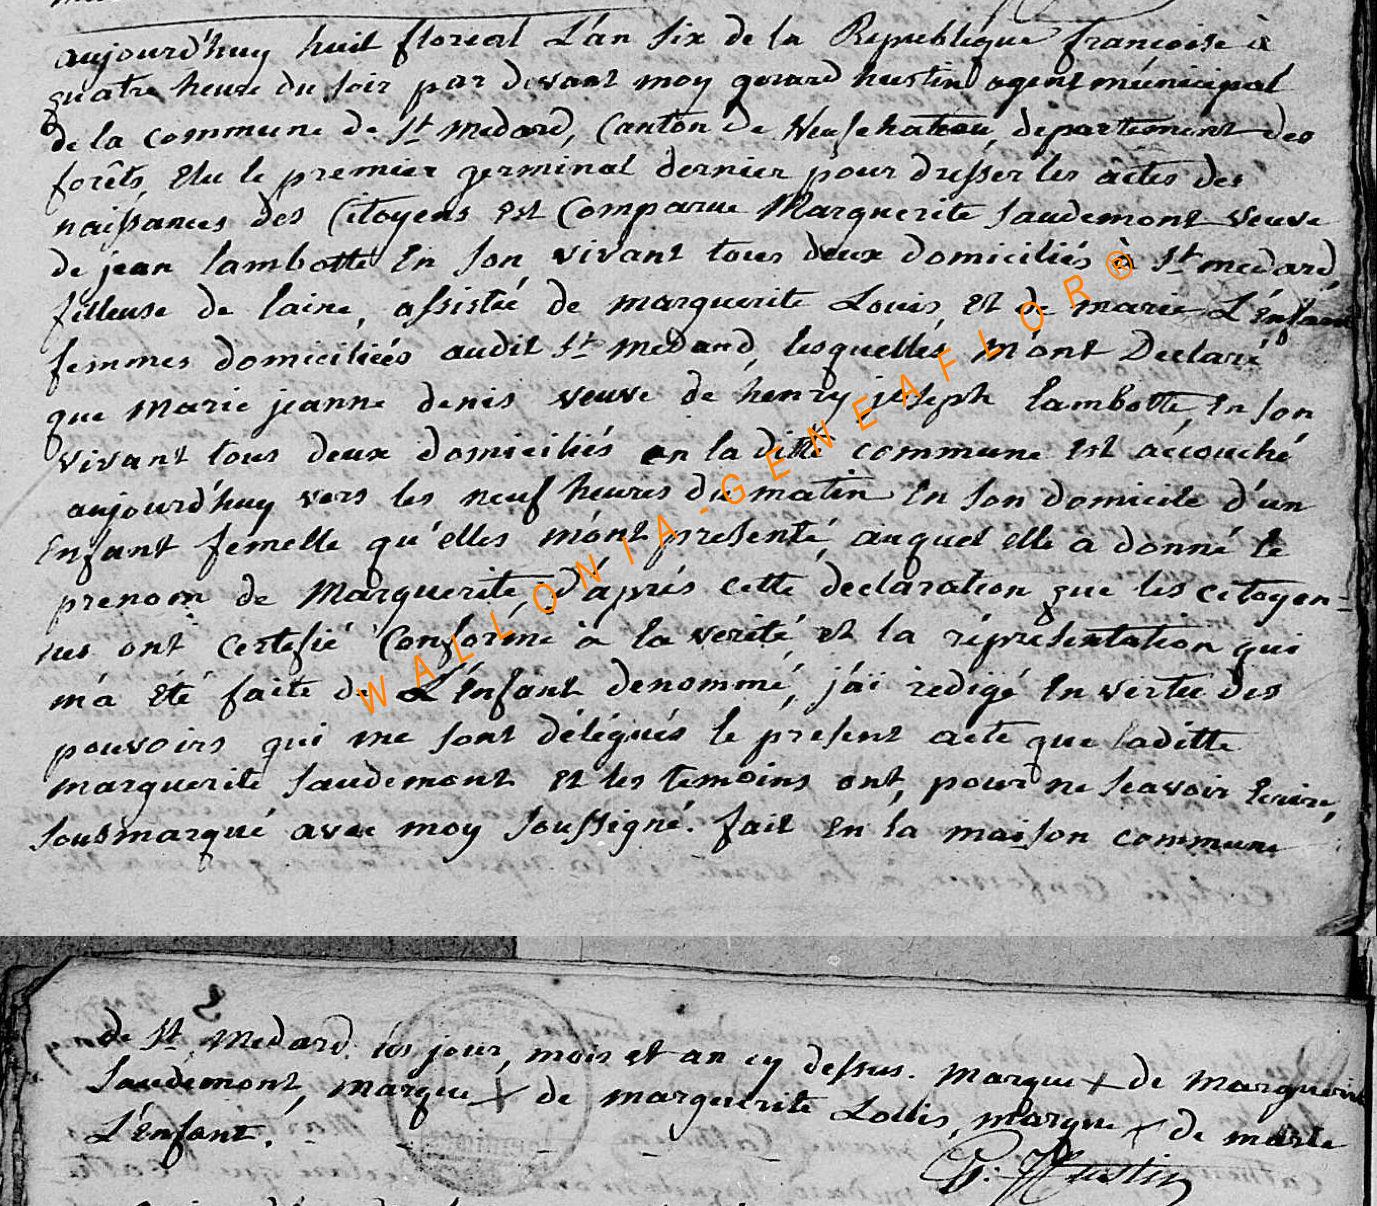 aujourd'huy huit floreal L'an six de la Republique françoise à
quatre heure du soir par devant moy gerard hustin agent municipal
de la commune de St medard, Canton de Neufchateau, departement des
forêts, Elu le premier germinal dernier pour dresser les actes des
naissances des Citoyens est Comparue Marguerite Saudemont veuve
de jean lambotte En son vivant tous deux domiciliés à St medard
filleuse de laine, assistée de marguerite Louis, et de marie L'Enfant
femmes domiciliées audit St medard, lesquelles, m'ont Declaré
que Marie jeanne denis veuve de henry joseph lambotte, En son
vivant tous deux domiciliés en la ditte commune est accouché
aujourd'huy vers les neuf heures du matin En son domicile d'un
Enfant femelle qu'elles m'ont presenté, auquel elle a donné le
prenom de Marguerite, d'après cette declaration que les citoyen=
nes ont certefié Conforme à la verité, et la réprésentation qui
m'a Eté faite de L'Enfant denommé, j'ai redigé En vertu des
pouvoirs qui me sont délégués le présent acte que laditte
marguerite Saudemont et les temoins ont, pour ne scavoir Ecrire,
sousmarqué avec moy soussigné. fait En la maison commune
WALLONIA-GENEAFLOR®
de St Medard. les jour, mois et an cy dessus. marque + de marguerite
Saudemont, marque + de marguerite Louis, marque + de marie
L'Enfant.
G: Hustin